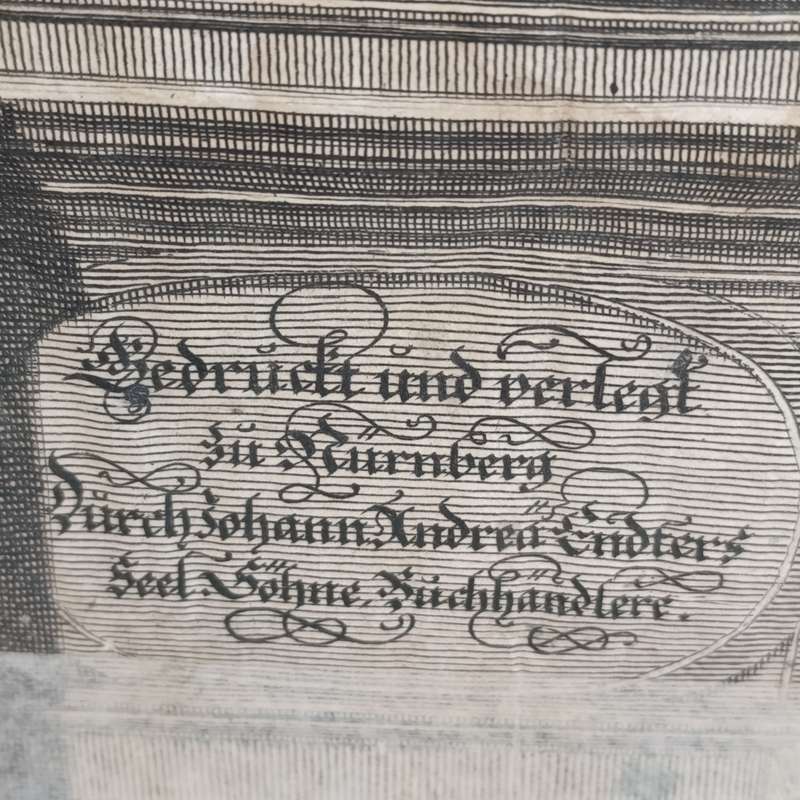 Gedruckt und verlegt
zu Nürnberg
Durch Johann Andreæ Endters
Seel. Söhne, Buchhändlere.